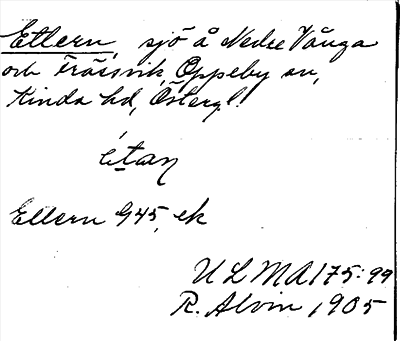 Ettern, sjö å Nedre Vånga
och Trässvik, Oppeby sn,
Kinda hd, Östergl.
étan
Ettern G45, ek
ULMA 175:99
R. Alvin 1905